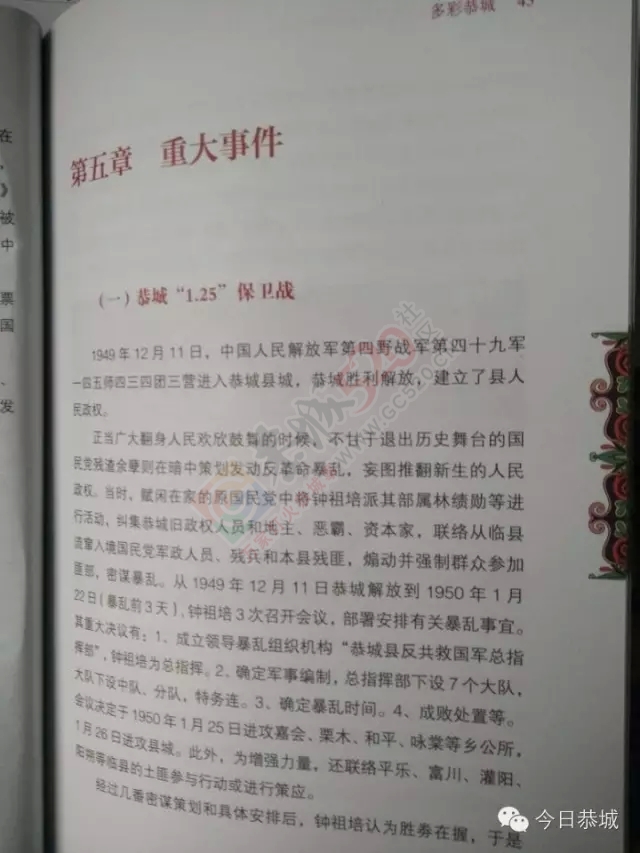 多彩恭城 43
第五章 重大事件
（一）恭城“1.25”保卫战
1949年12月11日，中国人民解放军第四野战军第四十九军
一四五师四三四团三营进入恭城县城，恭城胜利解放，建立了县人
民政权。
正当广大翻身人民欢欣鼓舞的时候，不甘于退出历史舞台的国
民党残渣余孽则在暗中策划发动反革命暴乱，妄图推翻新生的人民
政权。当时，赋闲在家的原国民党中将钟祖培派其部属林绩勋等进
行活动，纠集恭城旧政权人员和地主、恶霸、资本家，联络从临县
流窜入境国民党军政人员、残兵和本县残匪，煽动并强制群众参加
匪部，密谋暴乱。从1949年12月11日恭城解放到1950年1月
22日（暴乱前3天），钟祖培3次召开会议，部署安排有关暴乱事宜。
其重大决议有：1、成立领导暴乱组织机构“恭城县反共救国军总指
挥部”，钟祖培为总指挥。2、确定军事编制，总指挥部下设7个大队，
大队下设中队、分队，特务连。3、确定暴乱时间。4、成败处置等。
会议决定于1950年1月25日进攻嘉会、栗木、和平、咏棠等乡公所，
1月26日进攻县城。此外，为增强力量，还联络平乐、富川、灌阳、
阳朔等临县的土匪参与行动或进行策应。
经过几番密谋策划和具体安排后，钟祖培认为胜券在握，于是
在
》
被
中
票
国
、
发
恭城520社区
www.GC520.com
今日恭城